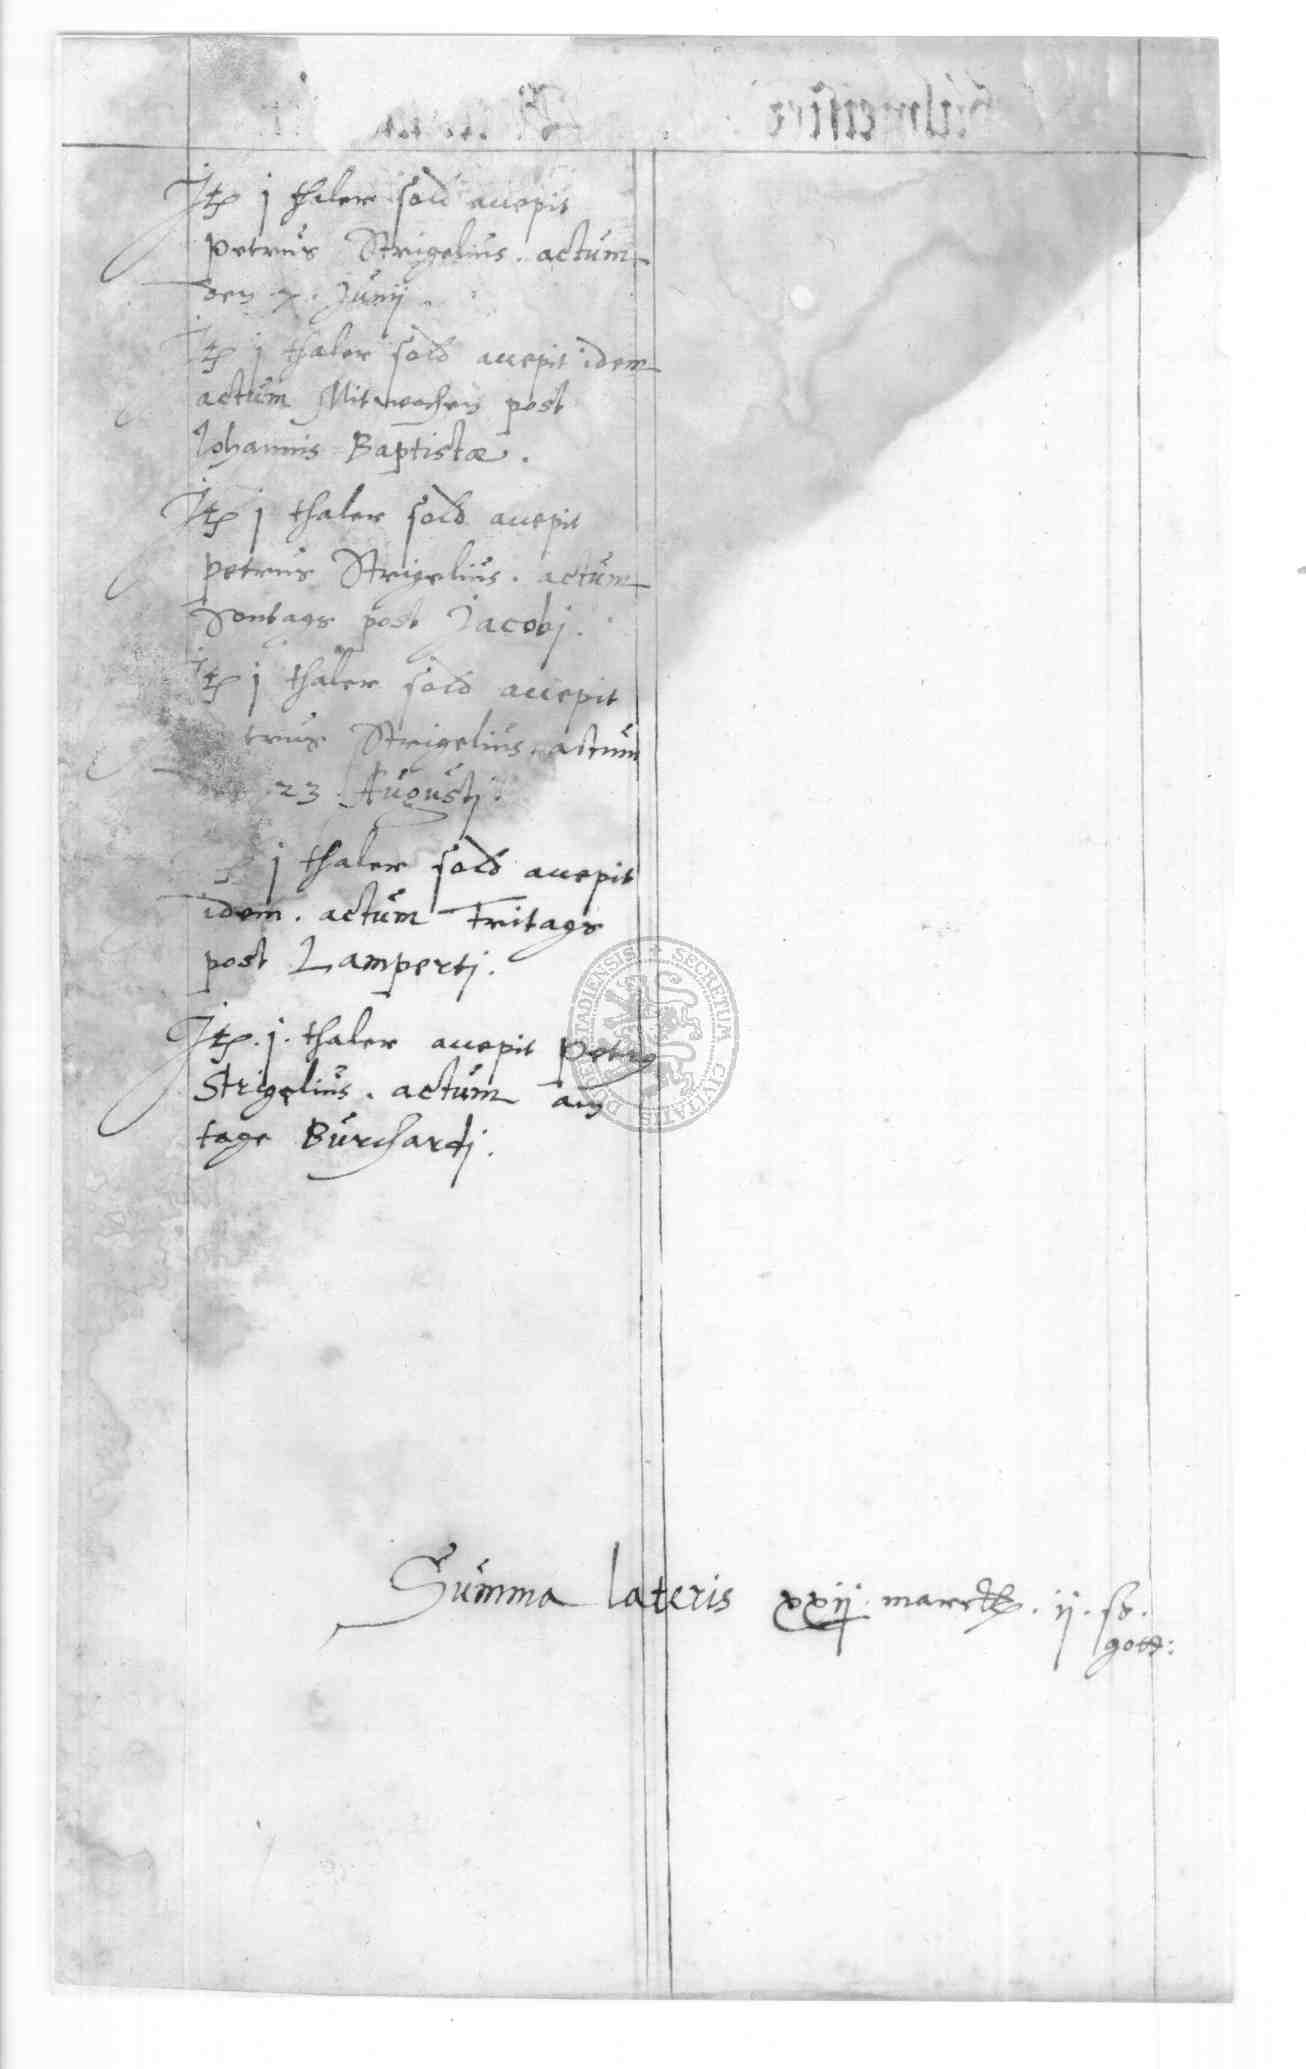 Jt j thaler sold accepit
Petrus Strigelius. actum
den 7. Junij.
Jt j thaler sold accepit idem
actum Mitwochen post
Johannis Baptistæ.
Jt j thaler sold accepit
petrus Strigelius. actum
Sontags post Jacobj.
Jt j thaler sold accepit
trus Strigelius. actum
23 Augustj.
j thaler sold accepit
idem. actum Fritags
post Lampertj.
Jt. j. thaler accepit Petrus
Strigelius. actum am
tage Burchardj.
SECRETUM CIVITATIS DUDERSTADIENSIS
Summa lateris xxij marck. ij. ß.
gott: